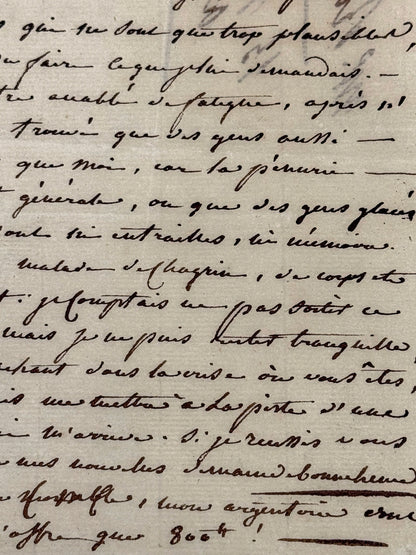 qui ne sont que trop plausibles,
faire ce que je lui demandais. —
être accablé de fatigue, après n'
trouvé que des gens aussi —
que moi, car la pénurie —
générale, ou que des gens glacés
sont ni entrailles, ni mémoire.
malade de Chagrin, de corps et
je Comptais ne pas sortir ce
mais je ne puis rester tranquille,
sachant dans la crise où vous êtes,
me mettre à la porte d'une
m'arrive. Si je reussis vous
mes nouvelles demain de bonne heure
mon argentier
n'offre que 800# !